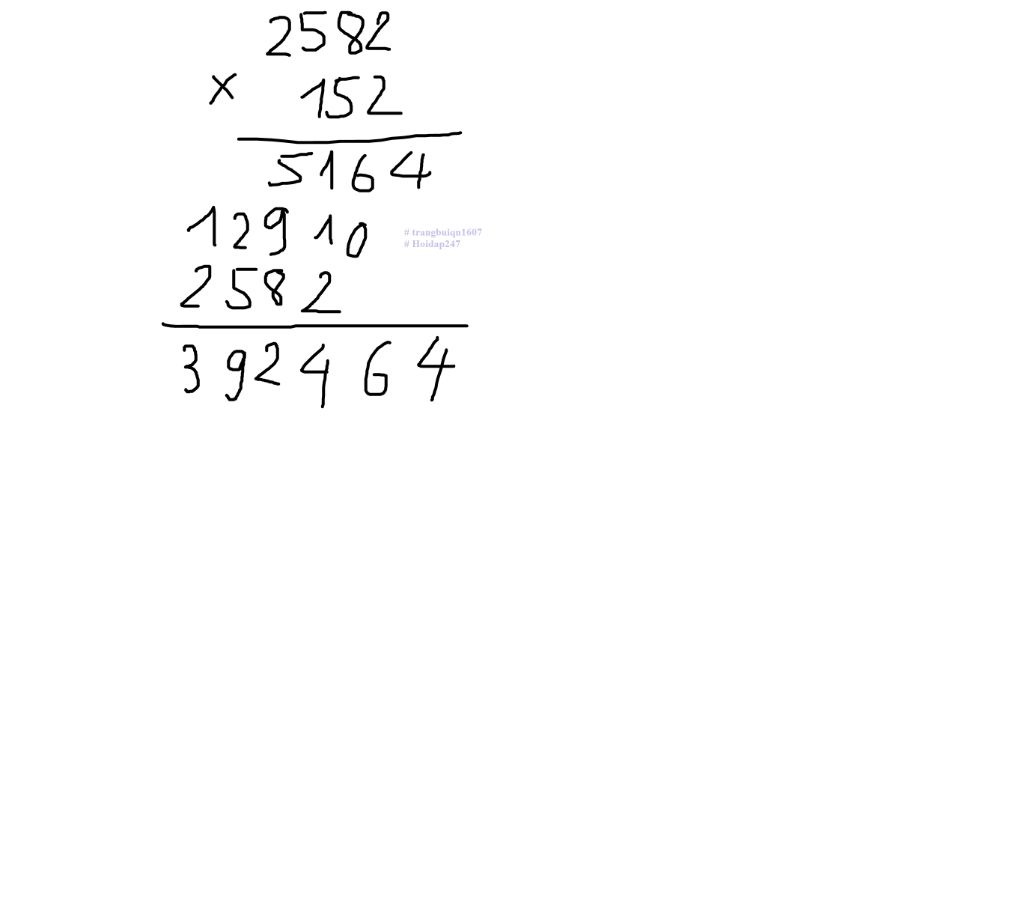 2582
× 152
5164
12910
# trangbuiqn1607
# Hoidap247
2582
392464